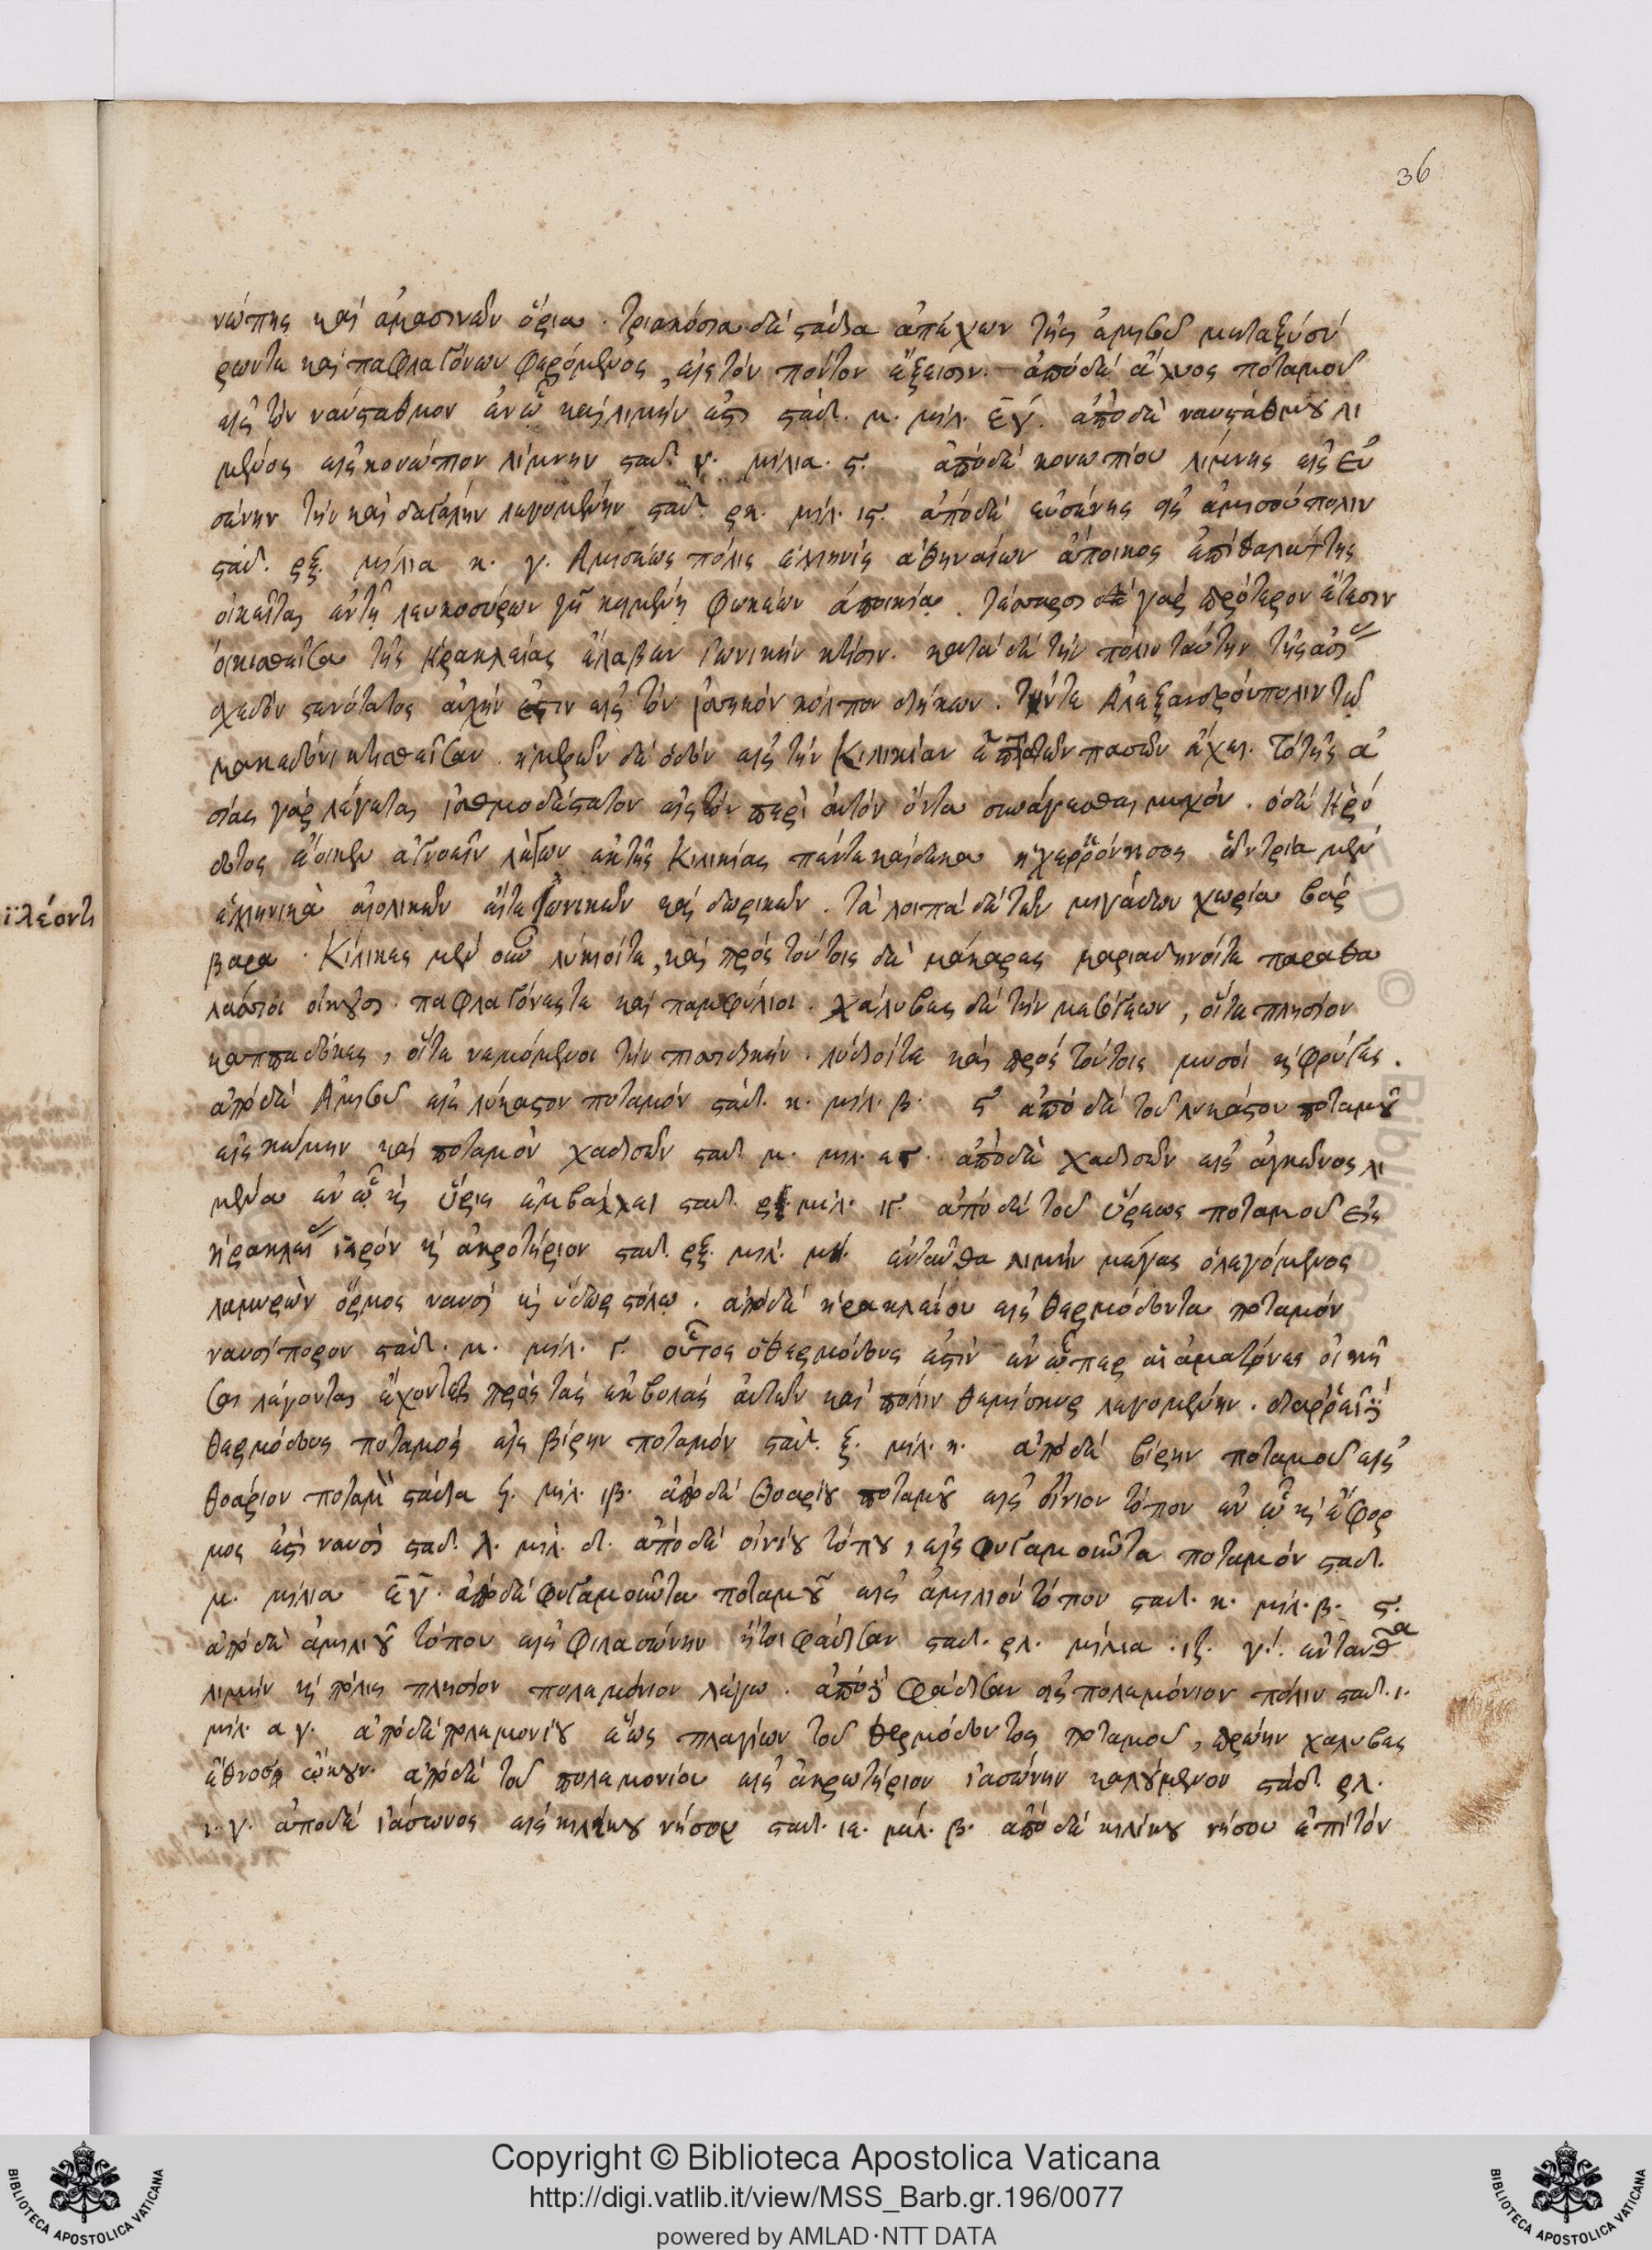 36
νώπης καὶ ἀμασινῶν ὅρια. τριακόσια δὲ στάδια ἀπέχων τῆς ἀμισοῦ μεταξὺ σύ
ρωντε καὶ παφλαγόνων φερόμενος, εἰς τὸν πόντον ἔξεισιν. ἀπὸ δὲ ἅλυος ποταμοῦ
εἰς τὸν ναύσταθμον ἐν ᾧ καὶ λιμήν ἐστι στάδ. μ. μίλ. ε̄ γ́. ἀπὸ δὲ ναυστάθμου λι
μένος εἰς κονώπιον λίμνην σταδ. ν. μίλια. ϛ. ἀπὸ δὲ κονωπίου λίμνης εἰς εὐ
σένην τὴν καὶ δαγάλην λεγομένην σταδ. ρκ. μίλ. ιϛ. ἀπὸ δὲ εὐσένης εἰς ἀμισοὺ πόλιν
στάδ. ρξ. μίλια κ. γ. Ἀμισέως πόλις ἑλληνὶς ἀθηναίων ἄποικος ἐπὶ θαλάττης
οἰκεῖται ἐν τῇ λευκοσύρων γῇ κειμένη φωκέων ἀποικία. τέσσαρσι γὰρ πρότερον ἔτεσιν
οἰκισθεῖσα τῆς Ἡρακλείας ἔλαβεν ἰωνικὴν κτίσιν. κατὰ δὲ τὴν πόλιν ταύτην τῆς ασι
σχεδὸν στενότατος αὐχήν ἐστιν εἰς τὸν ἰσσικὸν κόλπον διήκων. τήντε Ἀλεξανδρόπολιν τῷ
μακεδόνι κτισθεῖσαν. ἡμερῶν δὲ ὁδὸν εἰς τὴν Κιλικίαν ἑπτὰ τῶν πασῶν ἔχει. τὸ τῆς ἀ
σίας γὰρ λέγεται ἰσθμοδέστατον εἰς τὸν περὶ αὐτὸν ὄντα συνάγεσθαι μυχόν. ὁ δὲ Ἡρό
δοτος ἔοικεν ἀγνοεῖν λέγων ἐκ τῆς Κιλικίας πεντεκαίδεκα ἡ χερρόνησος ὧν τρία μὲν
ἑλληνικὰ αἰολικῶν εἶτα ἰωνικῶν καὶ δωρικῶν. τὰ λοιπὰ δὲ τῶν μιγάδων χωρία βάρ
βαρα. Κίλικες μὲν οὖν λύκιοίτε, καὶ πρὸς τούτοις δὲ μάκαρες μαριανδηνοίτε παραθα
λάσσιοι οἰκοῦσι. παφλαγόνεςτε καὶ παμφύλιοι. χάλυβες δὲ τὴν μεσόγεων, οἵτε πλησίον
καππαδόκες, οἵτε νεμόμενοι τὴν πισιδικήν. λυδοίτε καὶ πρὸς τούτοις μυσοὶ καὶ φρύγες.
ἀπὸ δὲ Ἀμισοῦ εἰς λύκαστον ποταμόν στάδ. κ. μίλ. β. ϛ ἀπὸ δὲ τοῦ λυκάστου ποταμοῦ
εἰς κώμην καὶ ποταμὸν χαδισὼν σταδ. μ. μιλ. ε γ. ἀπὸ δὲ χαδισῶν εἰς ἀγκῶνος λι
μένα ἐν ᾧ καὶ ὕρις ἐκβάλλει σταδ. ρ μίλ. ιγ. ἀπὸ δὲ τοῦ ὕρεως ποταμοῦ εἰς
ἡράκλει ἱερὸν καὶ ἀκροτήριον σταδ. ρξ. μιλ. μη. ἐνταῦθα λιμὴν μέγας ὁ λεγόμενος
λαμυρὼν ὅρμος ναυσὶ καὶ ὕδωρ στόλῳ. ἀπὸ δὲ ἡρακλείου εἰς θερμόδοντα ποταμόν
ναυσίπορον σταδ. μ. μίλ. γ. οὗτος ὁ θερμόδους ἐστὶν ἐν ᾧπερ αἱ ἀμαζόνες οἰκῆ
σαι λέγονται ἔχοντες πρὸς ταῖς ἐκβολαῖς αὐτῶν καὶ πόλιν θεμίσκυρ λεγομένην.
θερμόδους ποταμοὶ εἰς βίρην ποταμόν σταδ. ξ. μίλ. η. ἀπὸ δὲ βίρην ποταμοῦ εἰς
θοάριον ποταμ στάδια ϟ. μίλ. ιβ. ἀπὸ δὲ θοαρίου ποταμοῦ εἰς οἴνιον τόπον ἐν ᾧ καὶ ἔφορ
μος ἐστὶ ναυσὶ σταδ. λ. μίλ. δ. ἀπὸ δὲ οἰνίου τόπου, εἰς φυγαμοῦντα ποταμόν σταδ.
μ. μίλια ε̄ γ̄. ἀπὸ δὲ φυγαμοῦντα ποταμοῦ εἰς ἀμιλιοὺ τόπον σταδ. κ. μίλ. β. ϛ.
ἀπὸ δὲ ἀμιλιοῦ τόπου εἰς φιλασώνην ἤτοι φάδισαν σταδ. ρλ. μίλια ιζ. γ΄. ἐνταῦθα
λιμὴν καὶ πόλις πλησίον πολεμόνιον λέγω. ἀπὸ φάδισαν εἰς πολεμόνιον πόλιν σταδ. ι.
μίλ. α γ. ἀπὸ δὲ πολεμονίου ἕως πλαγίων τοῦ θερμόδοντος ποταμοῦ, πρώην χάλυβες
ἔθνος ᾤκουν. ἀπὸ δὲ τοῦ πολεμονίου εἰς ἀκρωτήριον ἰασώνην καλούμενον στάδ. ρλ.
ι. γ. ἀπὸ δὲ ἰάσωνος εἰς κιλίκου νῆσον σταδ. ιε. μίλ. β. ἀπὸ δὲ κιλίκου νήσου ἐπὶ τὸν
ϊλέοντ
Copyright © Biblioteca Apostolica Vaticana
http://digi.vatlib.it/view/MSS_Barb.gr.196/0077
powered by AMLAD·NTT DATA
BIBLIOTECA APOSTOLICA VATICANA
BIBLIOTECA APOSTOLICA VATICANA